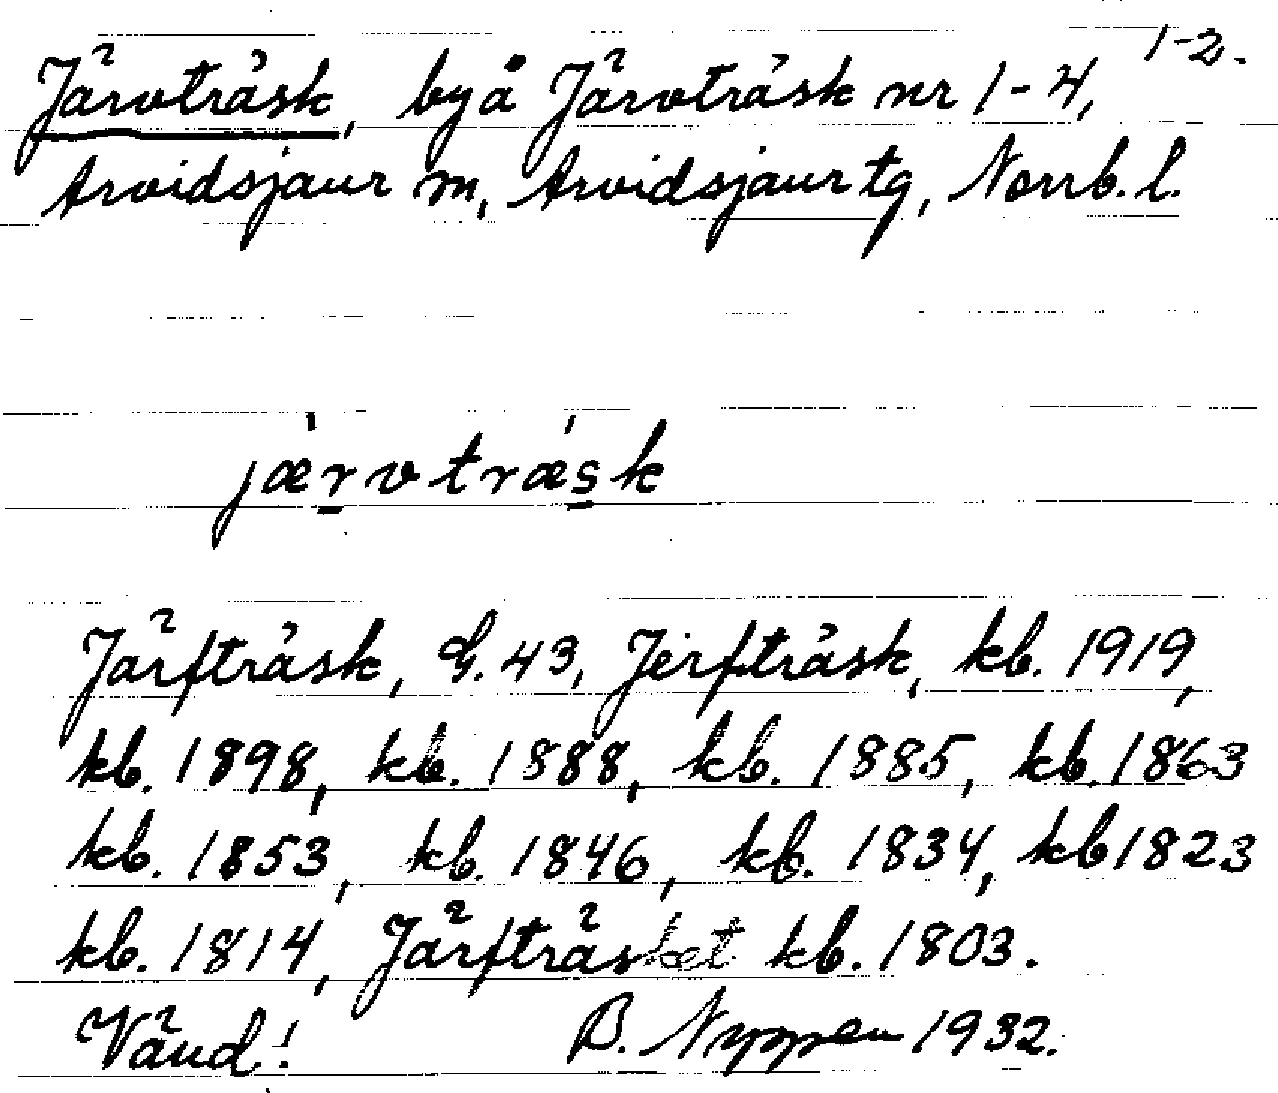 1-2.
Järvträsk, by å Järvträsk nr 1-4,
Arvidsjaur sn, Arvidsjaur tg, Norrb. l.
jæ̀rvtræ̀sk
Järfträsk, G. 43, Jerfträsk, kb. 1919,
kb. 1898, kb. 1888, kb. 1885, kb. 1863
kb. 1853, kb. 1846, kb. 1834, kb 1823
kb. 1814, Järfträsket kb. 1803.
Vänd! B. 1932.